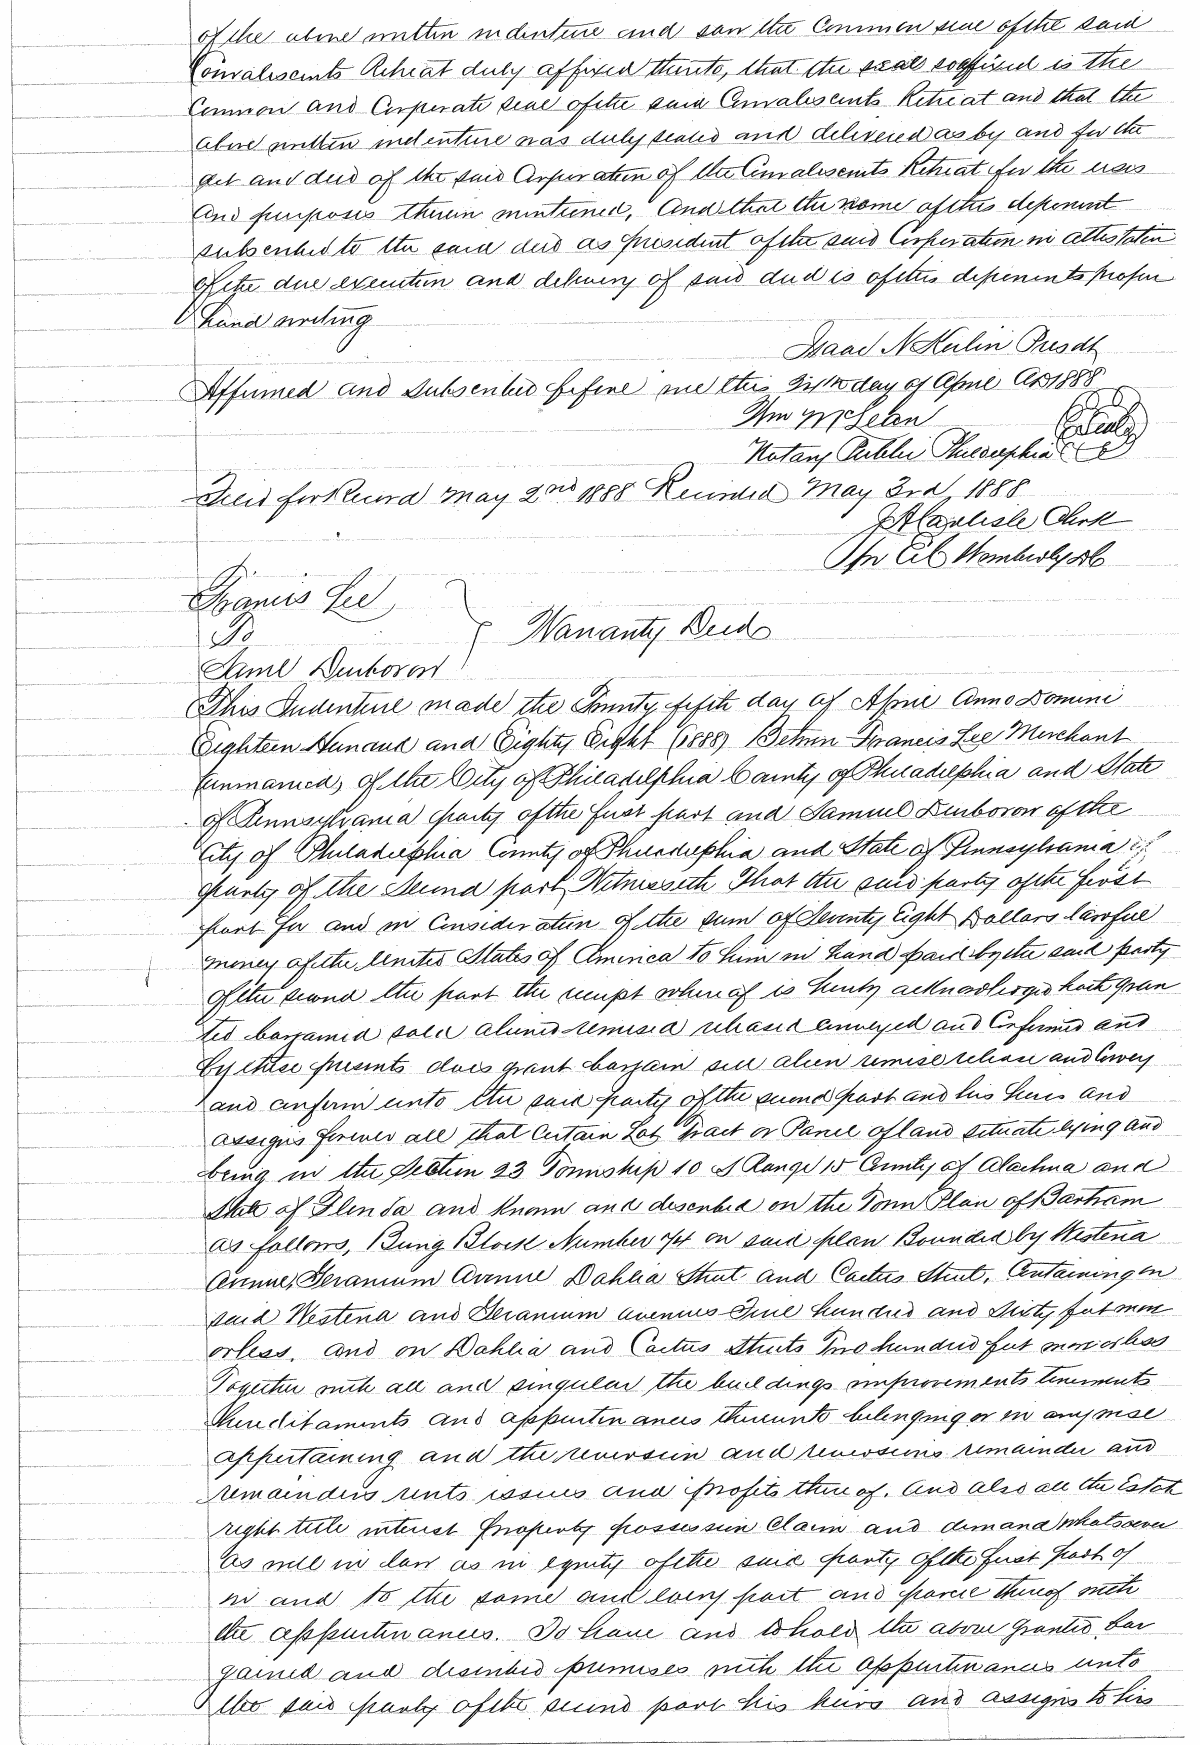 of the above written indenture and saw the Common seal of the said
Convalescents Retreat duly affixed thereto, that the seal so affixed is the
Common and Corporate seal of the said Convalescents Retreat and that the
above written indenture was duly sealed and delivered as by and for the
act and deed of the said Corporation of the Convalescents Retreat for the uses
and purposes therein mentioned, And that the name of this deponent
subscribed to the said deed as president of the said Corporation in attestation
of the due execution and delivery of said deed is of this deponents proper
hand writing
Isaac N Kerlin Presdt
Affirmed and Subscribed before me this day of April AD 1888
Wm McLean
Notary Public Philadelphia Seal
Filed for Record May 2nd 1888 Recorded May 3rd 1888
J A Carlisle Clerk
Pr Wimberly DC
Francis Lee
To
Saml Durborow
Warranty Deed
This Indenture made the Twenty fifth day of April Anno Domini
Eighteen Hundred and Eighty Eight (1888) Between Francis Lee Merchant
(unmarried) of the City of Philadelphia County of Philadelphia and State
of Pennsylvania party of the first part and Samuel Durborow of the
City of Philadelphia County of Philadelphia and State of Pennsylvania of
party of the second part Witnesseth That the said party of the first
part for and in Consideration of the sum of Seventy Eight Dollars lawful
money of the United States of America to him in hand paid by the said party
of the second the part the receipt whereof is hereby acknowledged hath gran
ted bargained sold aliened remised released conveyed and Confirmed and
by these presents does grant bargain sell alien remise release and Convey
and confirm unto the said party of the second part and his heirs and
assigns forever all that Certain Lot Tract or Parcel of land situate lying and
being in the Section 23 Township 10 S Range 15 County of Alachua and
State of Florida and known and described on the Town Plan of Bartram
as follows, Being Block Number 74 on said plan Bounded by Westena
Avenue, Geranium Avenue Dahlia Street and Cactus Street, Containing on
said Westena and Geranium avenues Five hundred and Sixty feet more
or less, and on Dahlia and Cactus Streets Two hundred feet more or less
Together with all and singular the buildings improvements tenements
hereditaments and appurtenances thereunto belonging or in anywise
appertaining and the reversion and reversions remainder and
remainders rents issues and profits thereof. And also all the Estate
right title interest property possession Claim and demand whatsoever
as well in law as in equity of the said party of the first part of
in and to the same and every part and parcel thereof with
the appurtenances. To have and to hold the above granted bar
gained and described premises with the appurtenances unto
the said party of the second part his heirs and assigns to his